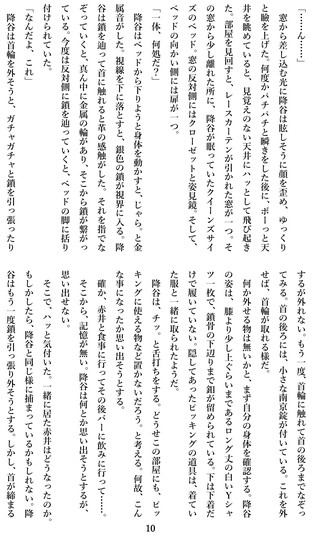 「……ん……」
　窓から差し込む光に降谷は眩しそうに顔を歪め、ゆっくり
と瞼を上げた。何度かパチパチと瞬きをした後に、ボーっと天
井を眺めていると、見覚えのない天井にハッとして飛び起き
た。部屋を見回すと、レースカーテンが引かれた窓が一つ。そ
の窓から少し離れた所に、降谷が眠っていたクイーンズサイ
ズのベッド。窓の反対側にはクローゼットと姿見鏡。そして、
ベッドの向かい側には扉が一つ。
「一体、何処だ？」
　降谷はベッドから下りようと身体を動かすと、じゃら。と金
属音がした。視線を下に落とすと、銀色の鎖が視界に入る。降
谷は鎖を辿って首に触れると革の感触がした。それを指でな
ぞっていくと、真ん中に金属の輪があり、そこから鎖が繋がっ
ている。今度は反対側に鎖を辿っていくと、ベッドの脚に括り
付けられていた。
「なんだよ、これ」
　降谷は首輪を外そうと、ガチャガチャと鎖を引っ張ったり
するが外れない。もう一度、首輪に触れて首の後ろまでなぞっ
てみる。首の後ろには、小さな南京錠が付いている。これを外
せば、首輪が取れる様だ。
　何か外せる物は無いかと、まず自分の身体を確認する。降谷
の姿は、膝より少し上ぐらいまであるロング丈の白いYシャ
ツ一枚で、鎖骨の下辺りまで釦が留められている。下は下着だ
けで履いていない。隠してあったピッキングの道具は、着てい
た服と一緒に取られたようだ。
　降谷は、チッ。と舌打ちをする。どうせこの部屋にも、ピッ
キングに使える物など置かないだろう。と考える。何故、こん
な事になったか思い出そうとする。
　確か、赤井と食事に行ってその後バーに飲みに行って……。
　そこから、記憶が無い。降谷は何とか思い出そうとするが、
思い出せない。
　そこで、ハッと気付いた。一緒に居た赤井はどうなったのか。
もしかしたら、降谷と同じ様に捕まっているかもしれない。降
谷はもう一度鎖を引っ張り外そうとする。しかし、首が締まる
10